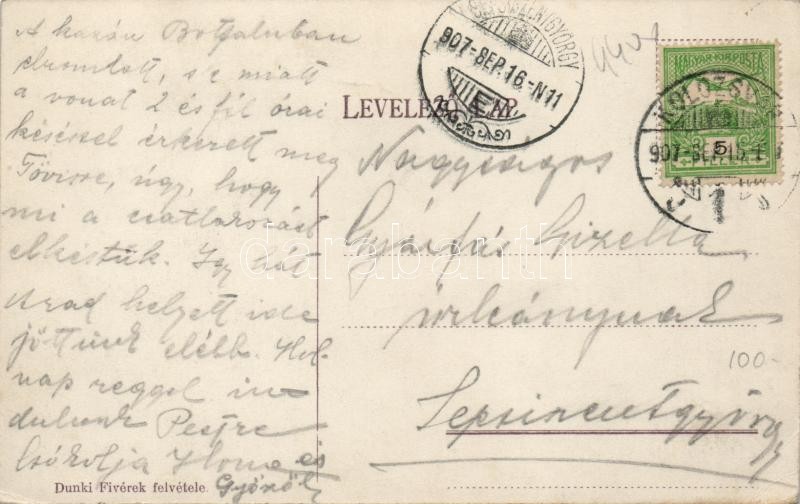 A kazán Botfaluban
elromlott, s e miatt
a vonat 2 és fél órai
késéssel érkezett meg
Tövisre, úgy, hogy
mi a csatlakozást
elkéstük. Így hát
Arad helyett ide
jöttünk előbb. Hol-
nap reggel in-
dulunk Pestre
Csókolja Ilona és
Győző
Dunki Fivérek felvétele.
LEVELEZŐ-LAP.
Nagyságos
Gyárfás Gizella
úrleánynak
Sepsiszentgyörgy
SEPSISZENTGYÖRGY
907-SEP.16-N11
E
MAGYAR KIR. POSTA
5
KOLOZSVÁR
907-SEP.15
1
100-
darabanth